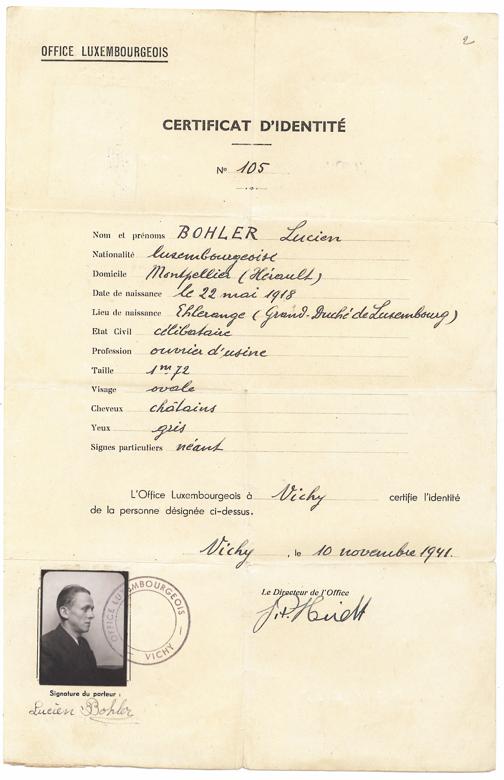 OFFICE LUXEMBOURGEOIS
2
CERTIFICAT D'IDENTITÉ
Nº 105
Nom et prénoms BOHLER Lucien
Nationalité luxembourgeoise
Domicile Montpellier (Hérault)
Date de naissance le 22 mai 1918
Lieu de naissance Ehlerange (Grand-Duché de Luxembourg)
Etat Civil célibataire
Profession ouvrier d'usine
Taille 1m72
Visage ovale
Cheveux châtains
Yeux gris
Signes particuliers néant
L'Office Luxembourgeois à Vichy certifie l'identité
de la personne désignée ci-dessus.
Vichy, le 10 novembre 1941.
Le Directeur de l'Office
OFFICE LUXEMBOURGEOIS
- VICHY -
Signature du porteur :
Lucien Bohler